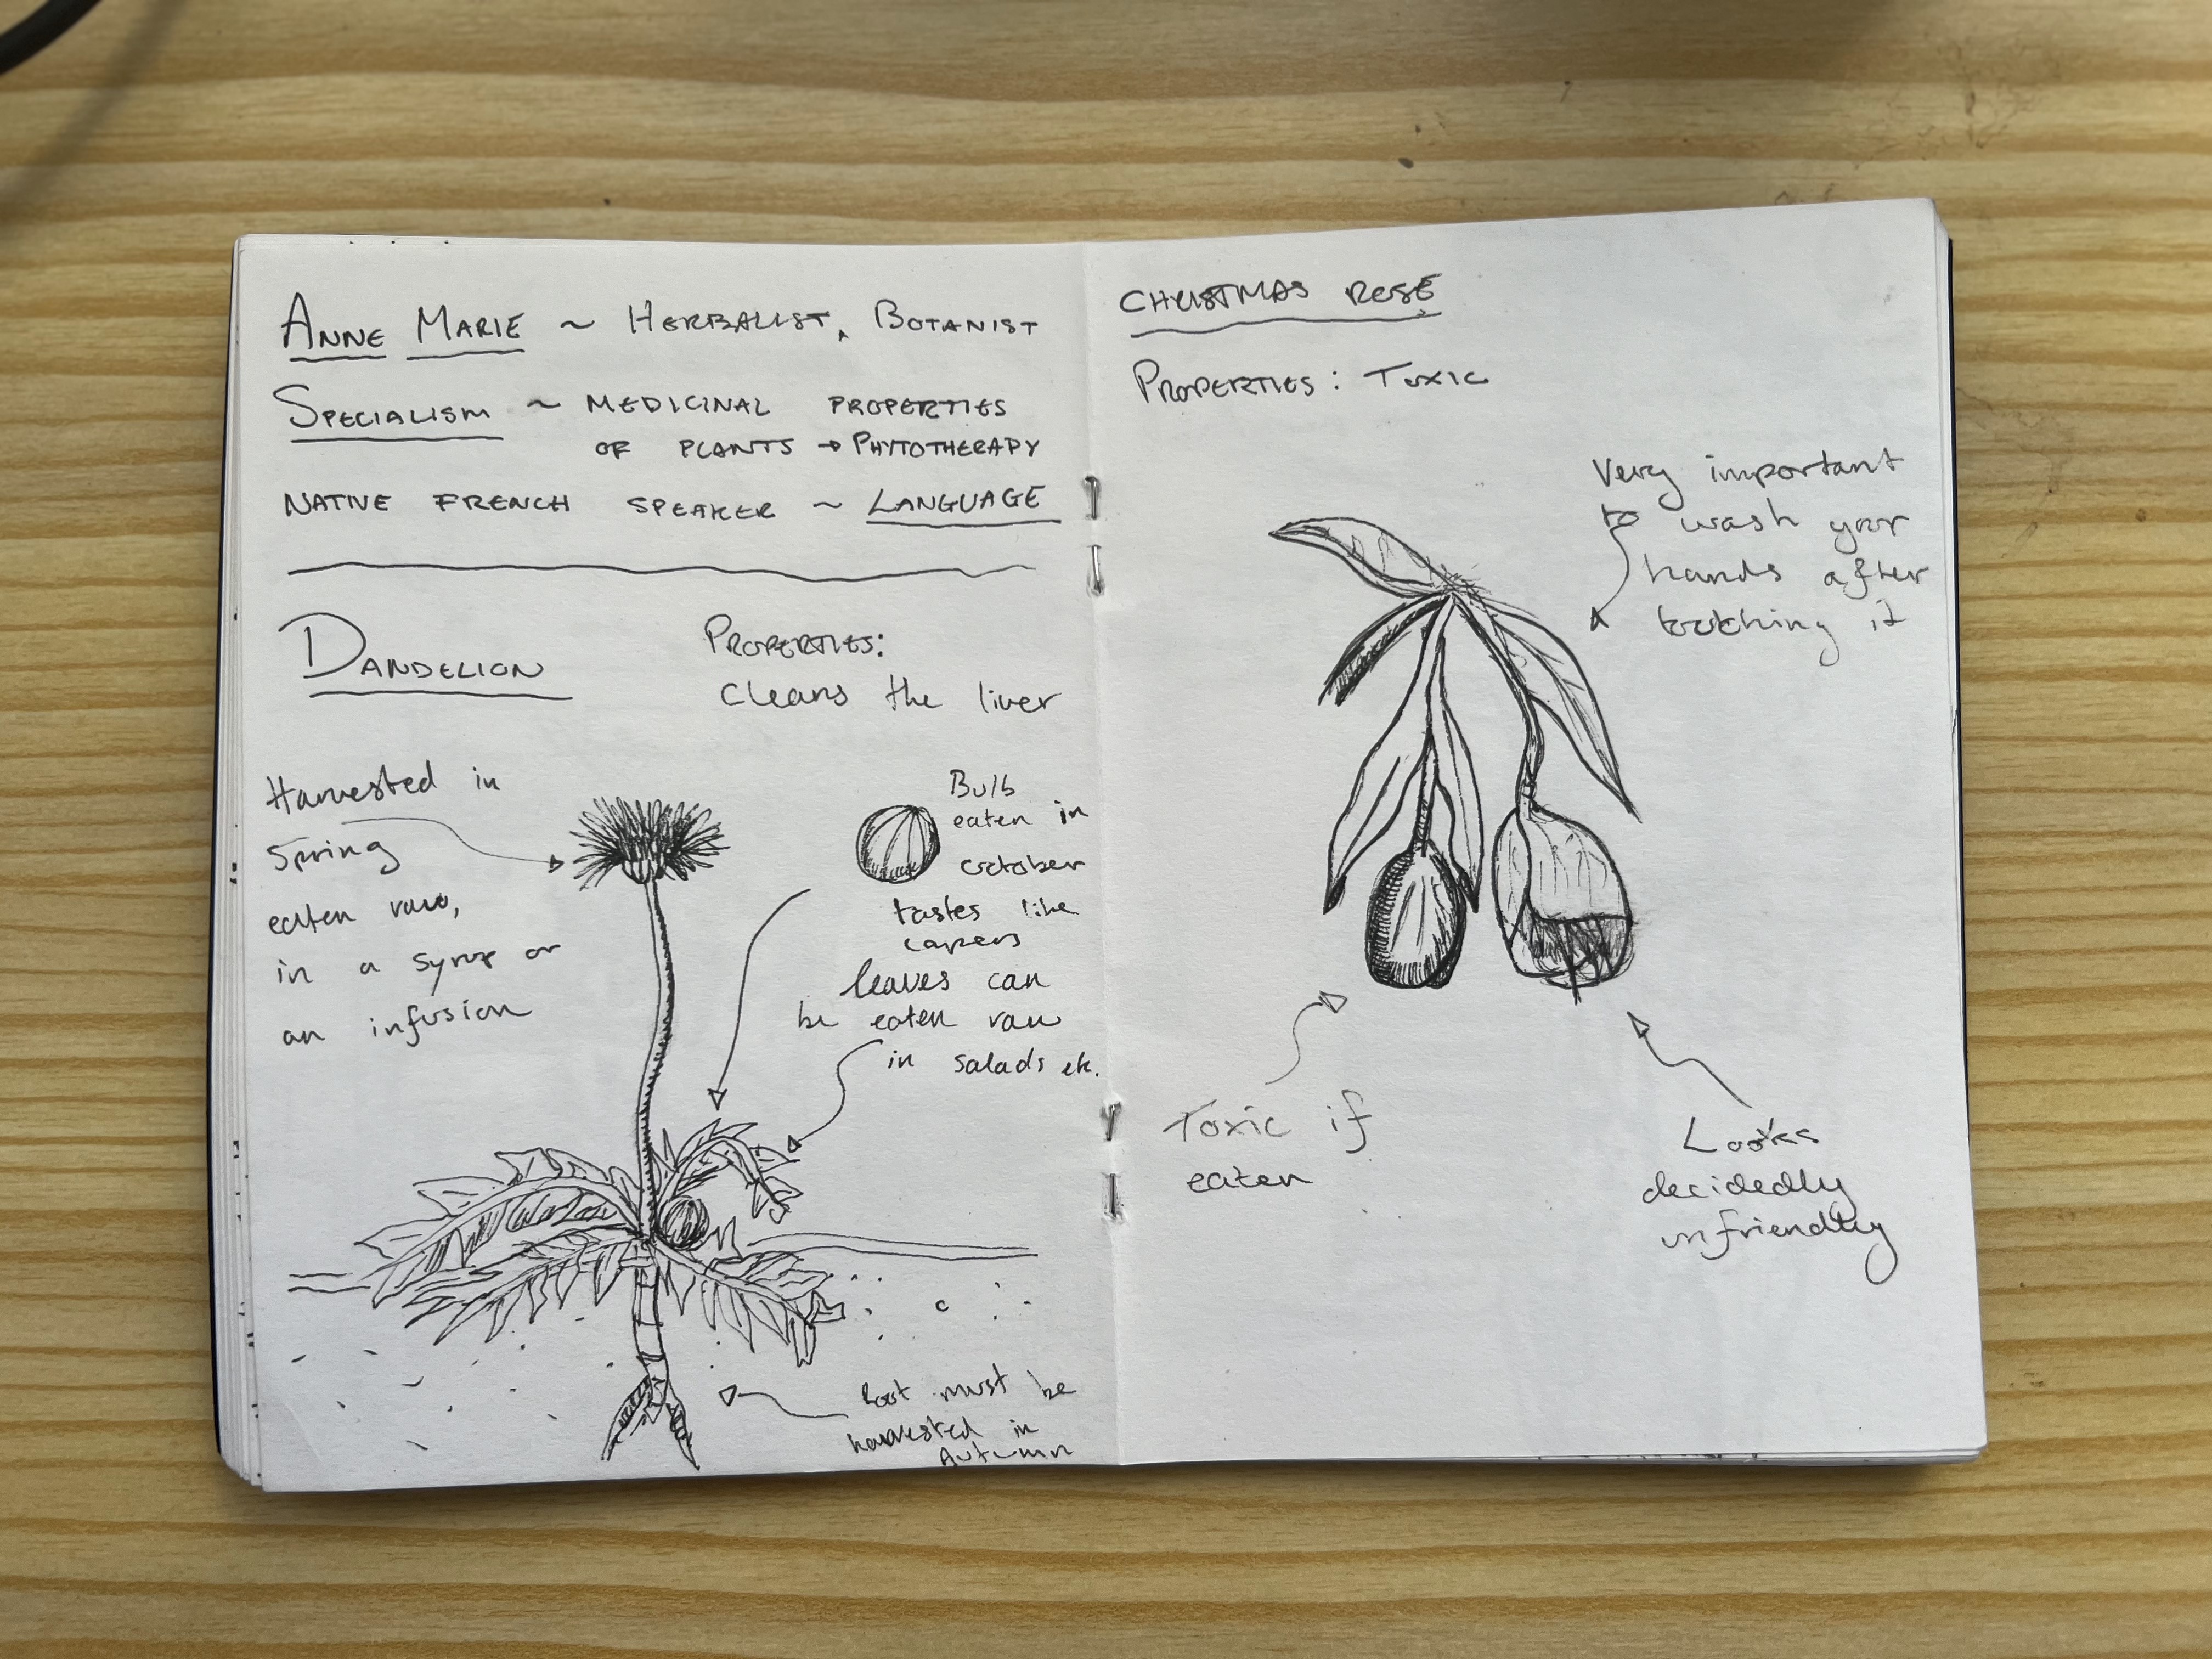 ANNE MARIE ~ HERBALIST, BOTANIST
SPECIALISM ~ MEDICINAL PROPERTIES
OF PLANTS → PHYTOTHERAPY
NATIVE FRENCH SPEAKER ~ LANGUAGE
DANDELION
PROPERTIES:
Cleans the liver
Harvested in
Spring
eaten raw,
in a syrup or
an infusion
Bulb
eaten in
october
tastes like
capers
leaves can
be eaten raw
in salads etc.
Root must be
harvested in
Autumn
CHRISTMAS ROSE
PROPERTIES: TOXIC
Very important
to wash your
hands after
touching it
Toxic if
eaten
Looks
decidedly
unfriendly